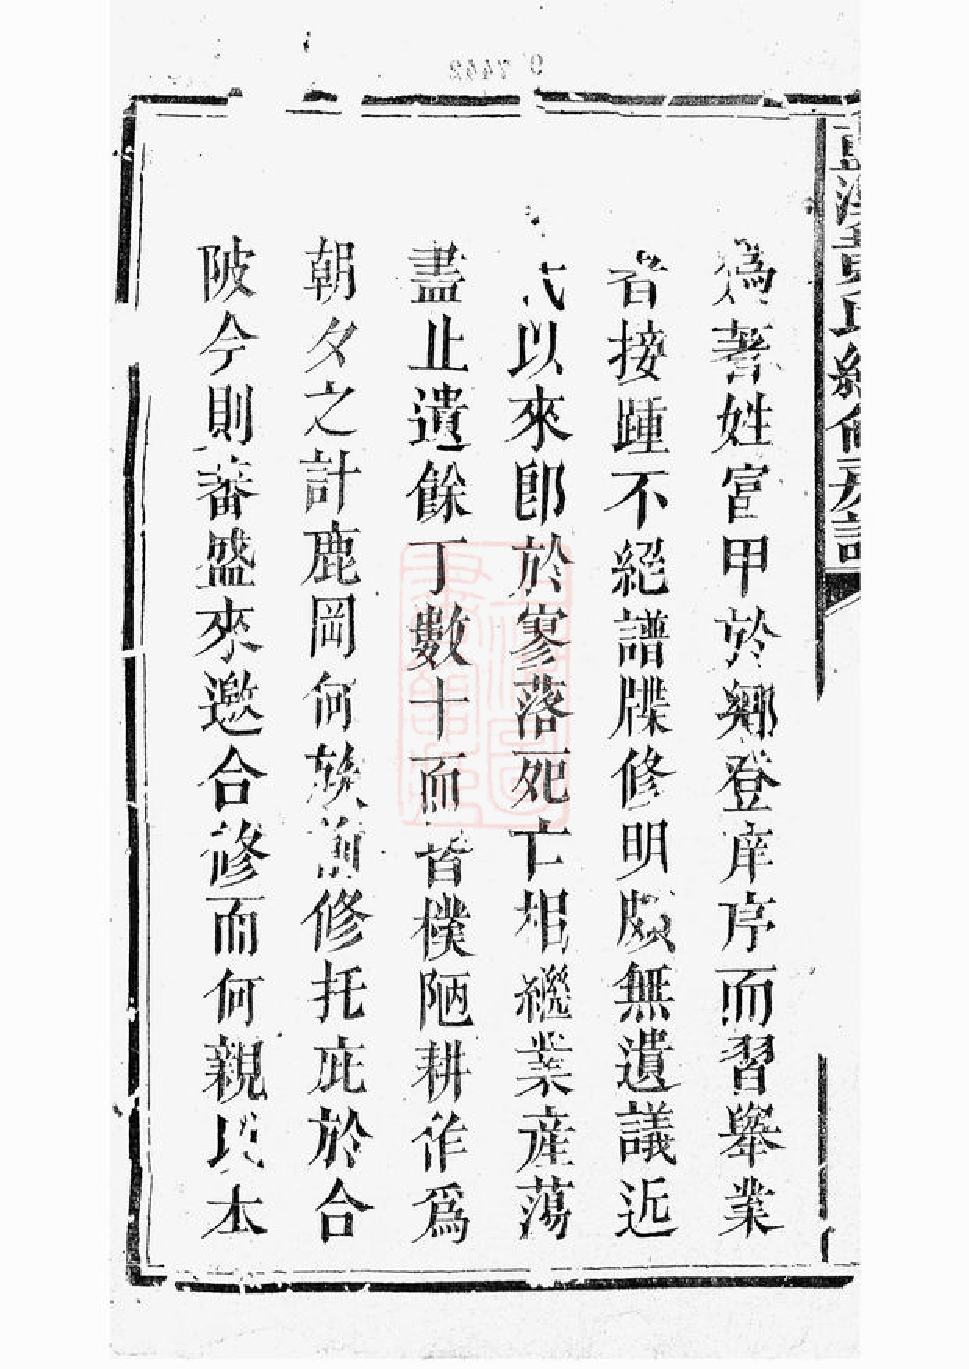 為著姓官甲於鄉登庠序而習舉業
者接踵不絕譜牒修明頗無遺議近
代以來即於寥落死亡相繼業產蕩
盡止遺餘丁數十而皆樸陋耕作為
朝夕之計鹿岡何族前修托庇於合
陂今則蕃盛來邀合修而何親以本
氏續修房譜